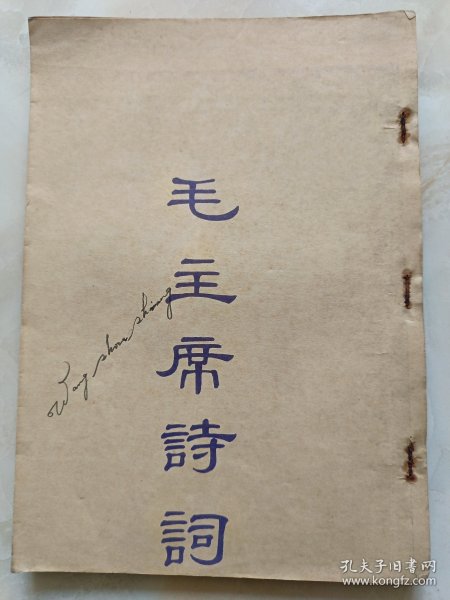 毛主席詩詞
Wang shou shing
孔夫子旧书网
www.kongfz.com